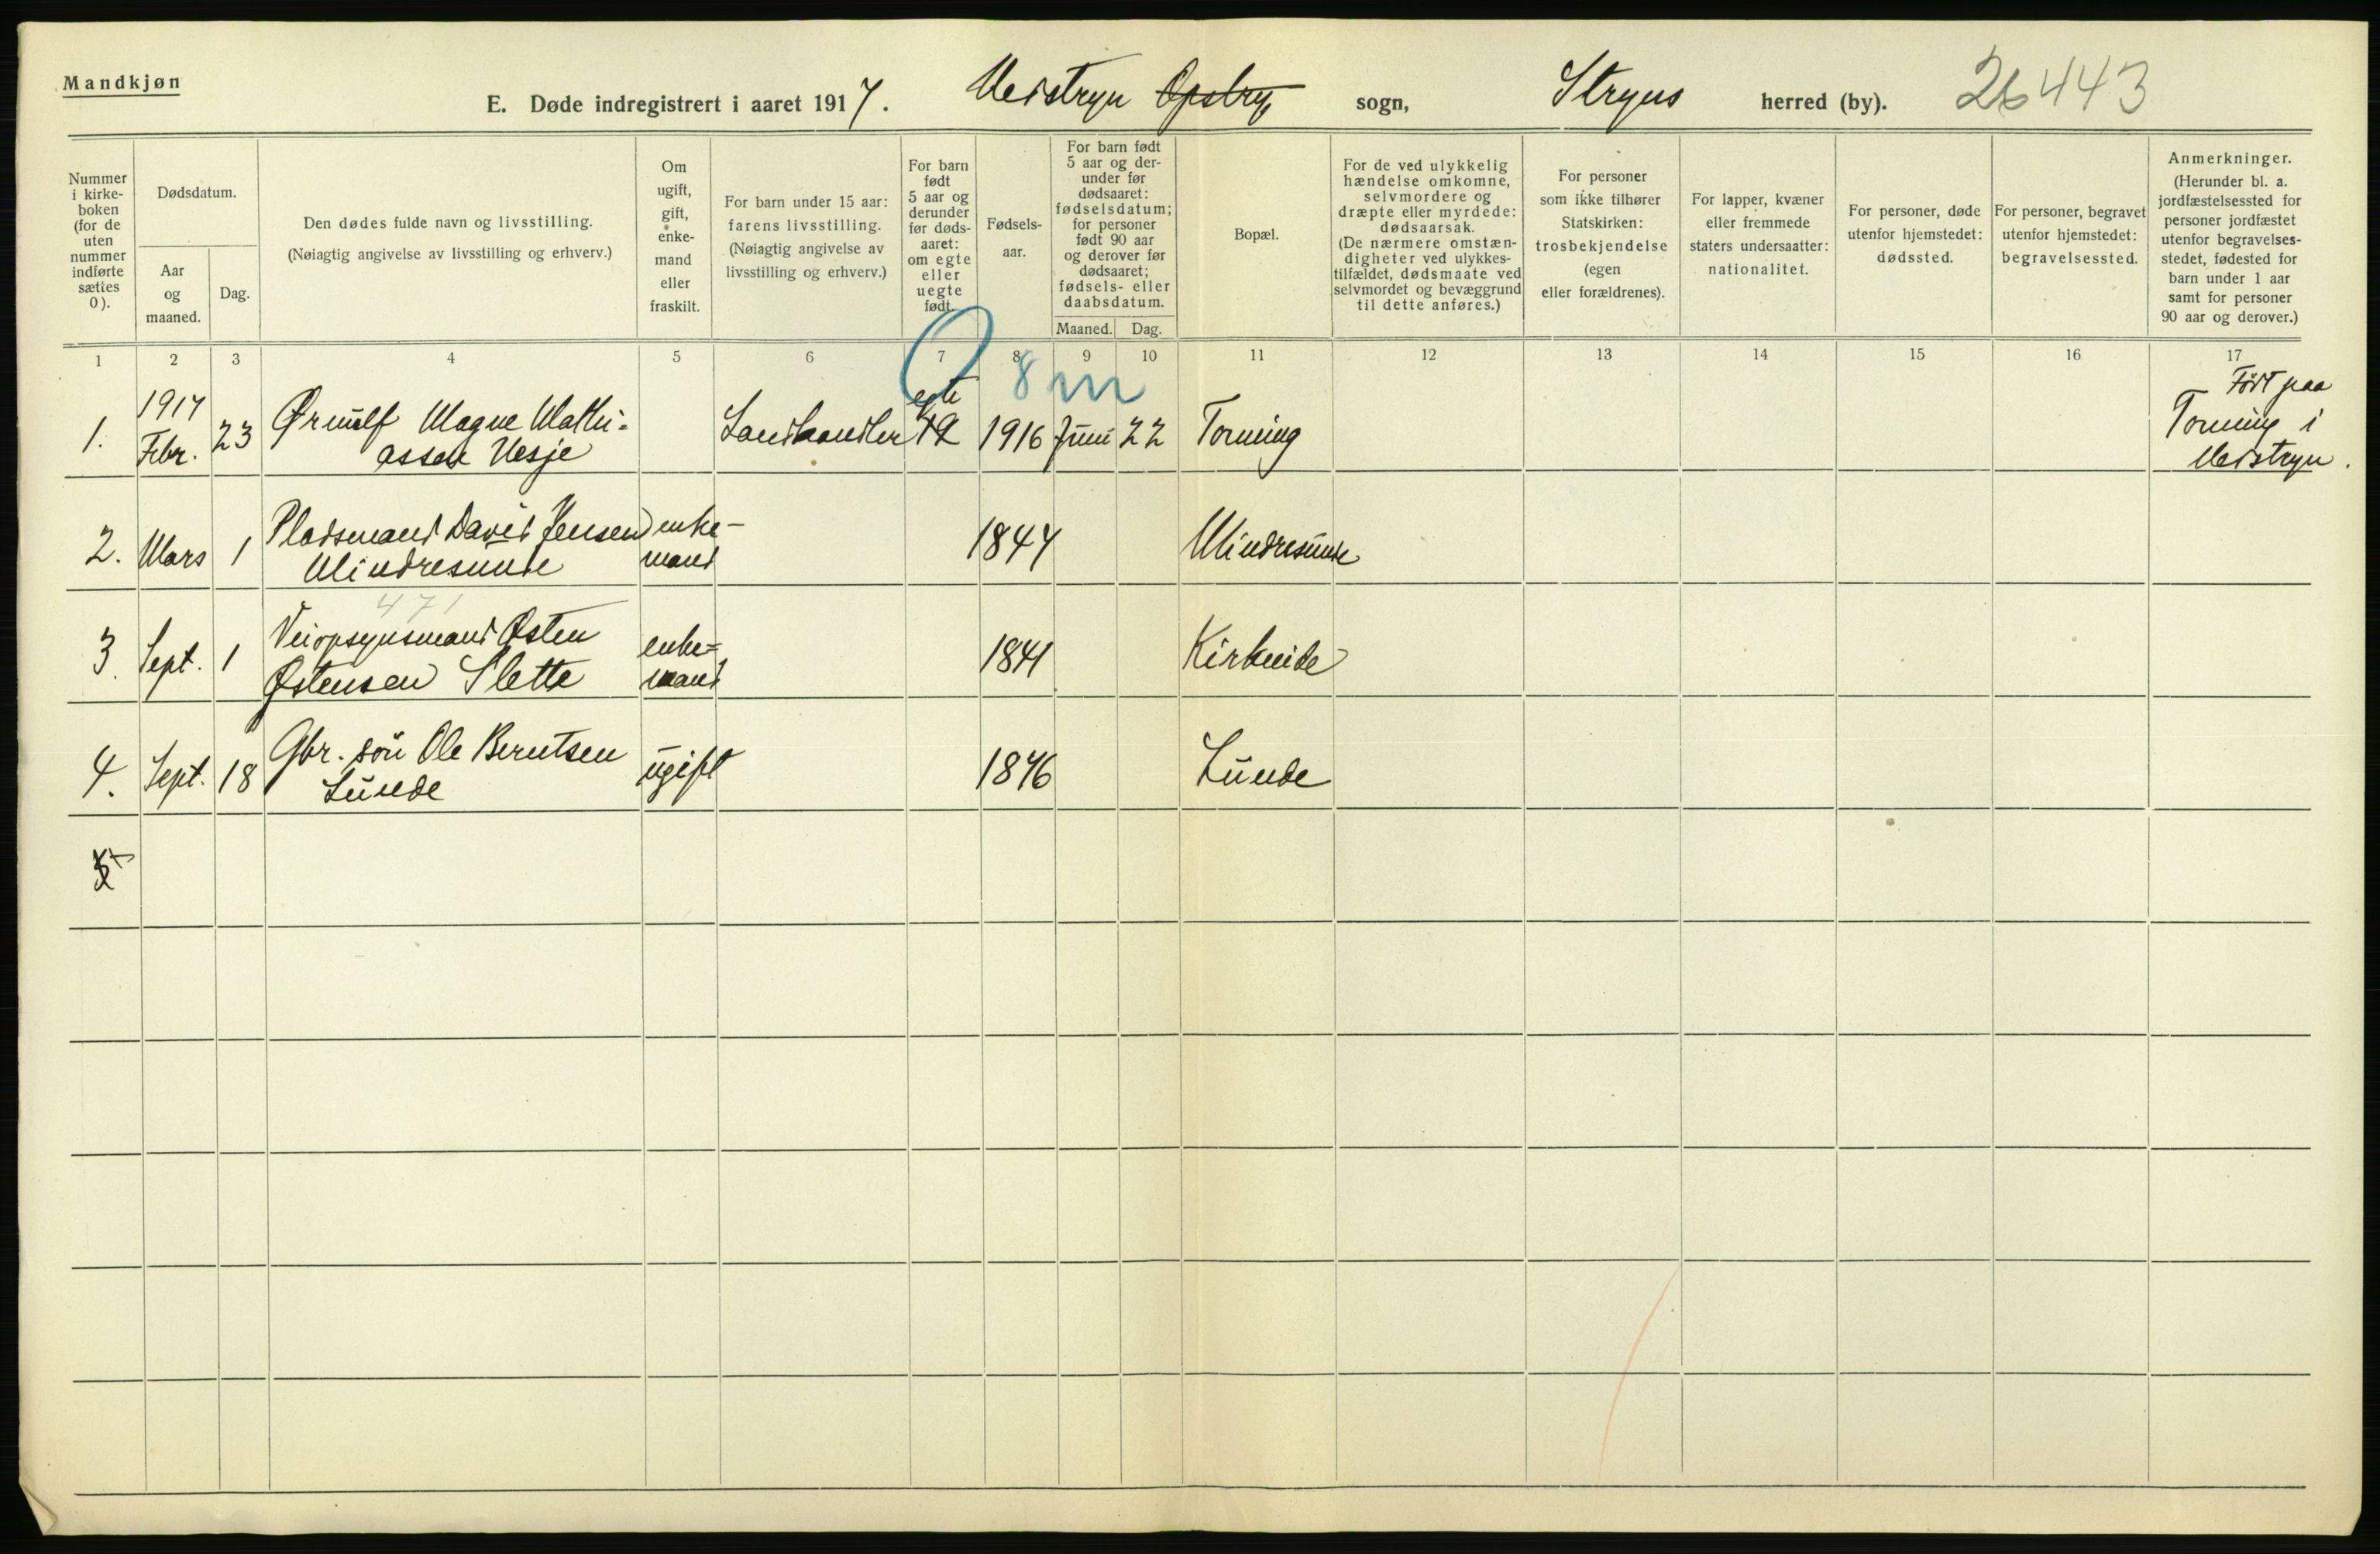 Mandkjøn
E. Døde indregistrert i aaret 1917. Meistryn Opstryn sogn, Stryns herred (by). 26443
Nummer i kirke- boken (for de uten nummer indførte sættes 0).
Dødsdatum.
Aar og maaned.
Dag.
Den dødes fulde navn og livsstilling.
(Nøiagtig angivelse av livsstilling og erhverv.)
Om ugift, gift, enke- mand eller fraskilt.
For barn under 15 aar: farens livsstilling. (Nøiagtig angivelse av livsstilling og erhverv.)
For barn født 5 aar og derunder før døds- aaret: om egte eller uegte født.
Fødsels- aar.
For barn født 5 aar og der- under før dødsaaret: fødselsdatum; for personer født 90 aar og derover før dødsaaret; fødsels- eller daabsdatum.
Maaned. Dag.
Bopæl.
For de ved ulykkelig hændelse omkomne, selvmordere og dræpte eller myrdede: dødsaarsak. (De nærmere omstæn- digheter ved ulykkes- tilfældet, dødsmaate ved selvmordet og bevæggrund til dette anføres.)
For personer som ikke tilhører Statskirken: trosbekjendelse (egen eller forældrenes).
For lapper, kvæner eller fremmede staters undersaatter: nationalitet.
For personer, døde utenfor hjemstedet: dødssted.
For personer, begravet utenfor hjemstedet: begravelsessted.
Anmerkninger. (Herunder bl. a. jordfæstelsessted for personer jordfæstet utenfor begravelses- stedet, fødested for barn under 1 aar samt for personer 90 aar og derover.)
1 2 3 4 5 6 7 8 9 10 11 12 13 14 15 16 17
0 8 m
1. 1917 Febr. 23 Ørnulf Magne Mathi- assen Vesje Landhandler egte 1916 Juni 22 Torning Født paa Torning i Meistryn.
2. Mars 1 Pladsmand David Jensen Mindresunde enke- mand 1844 Mindresunde
471
3. Sept. 1 Veiopsynsmand Østen Østensen Slette enke- mand 1841 Kirkeide
4. Sept. 18 Gbr. søn Ole Berntsen Lunde ugift 1846 Lunde